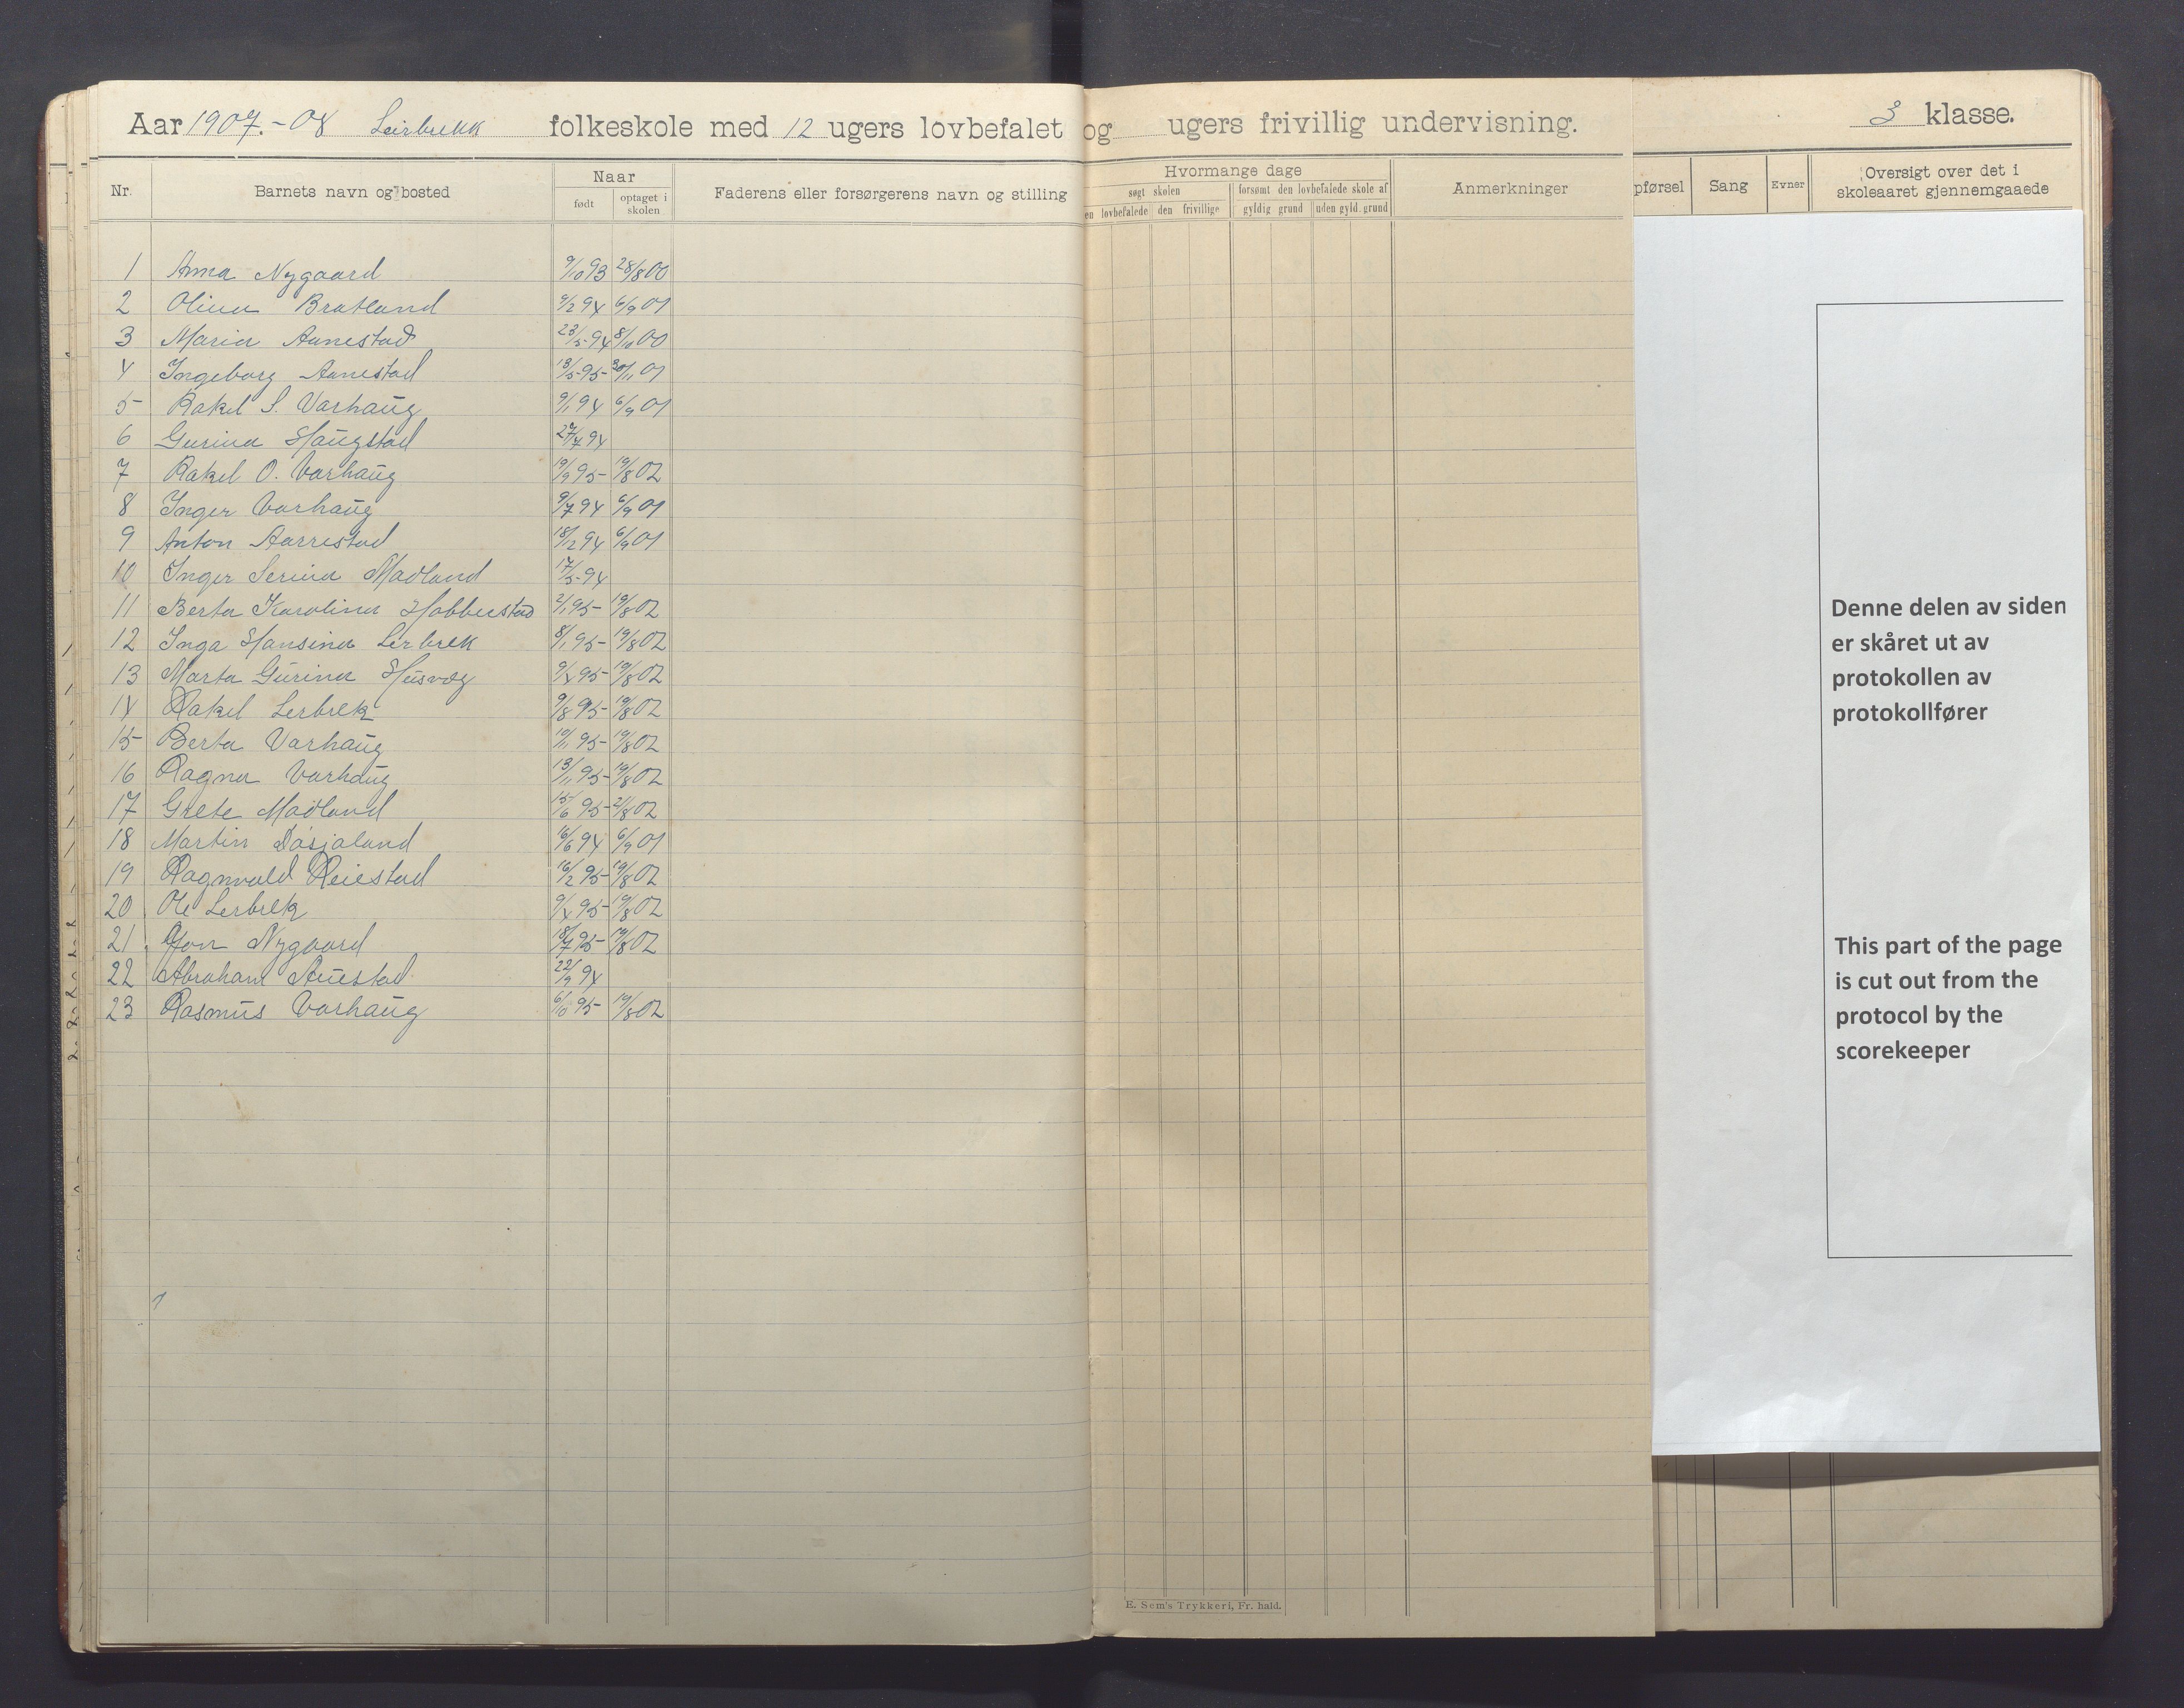 Aar 1907.-08 Leirbrekk folkeskole med 12 ugers lovbefalet og ugers frivillig undervisning. 3 klasse.
Nr. Barnets navn og bosted Naar Faderens eller forsørgerens navn og stilling Hvormange dage Anmerkninger pførsel Sang Evner Oversigt over det i skoleaaret gjennemgaaede
født optaget i skolen søgt skolen forsømt den lovbefalede skole af
en lovbefalede den frivillige gyldig grund uden gyld. grund
1 Anna Nygaard 9/10 93 28/8 00
2 Olina Bratland 9/2 94 6/9 01
3 Maria Aanestad 23/5-94 8/10 00
4 Ingeborg Aanestad 13/5-95- 30/11 01
5- Rakel S. Varhaug 9/1 94 6/9 01
6 Gurina Haugstad 27/7 94
7 Rakel O. Varhaug 19/9 95- 19/8 02
8 Inger Varhaug 9/7 94 6/9 01
9 Anton Aarrestad 18/12 94 6/9 01
10 Inger Serina Madland 17/5-94
11 Berta Karolina Hobberstad 2/1 95- 19/8 02
12 Inga Hansina Lerbrek 8/1 95- 19/8 02
13 Marta Gurina Husvæg 9/4 95- 19/8 02
14 Rakel Lerbrek 9/8 95- 19/8 02
15- Berta Varhaug 10/1 95- 19/8 02
16 Ragna Varhaug 13/11 95- 19/8 02
17 Grete Madland 15/6 95- 21/8 02
18 Martin Dåsjaland 16/6 94 6/9 01
19 Ragnvald Reiestad 16/2 95- 19/8 02
20 Ole Lerbrek 9/4 95- 19/8 02
21 Jon Nygaard 18/7 95- 19/8 02
22 Abraham Auestad 22/9 94
23 Rasmus Varhaug 6/10 95- 19/8 02
Denne delen av siden
er skåret ut av
protokollen av
protokollfører
This part of the page
is cut out from the
protocol by the
scorekeeper
E. Sem's Trykkeri, Fr. hald.